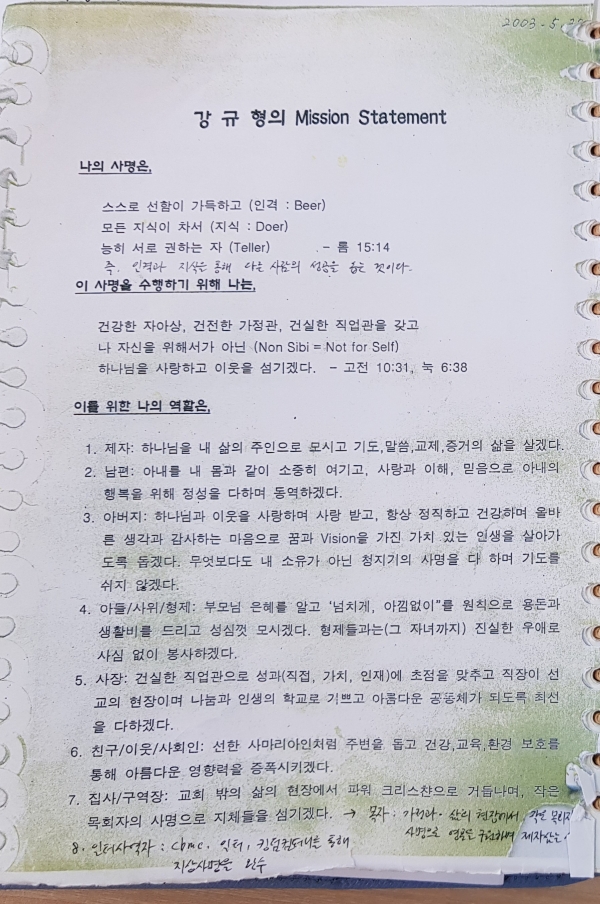 2003-5,
강 규 형의 Mission Statement
나의 사명은,
스스로 선함이 가득하고 (인격 : Beer)
모든 지식이 차서 (지식 : Doer)
능히 서로 권하는 자 (Teller) - 롬 15:14
즉, 인격과 지식을 통해 다른 사람의 성공을 돕는 것이다.
이 사명을 수행하기 위해 나는,
건강한 자아상, 건전한 가정관, 건실한 직업관을 갖고
나 자신을 위해서가 아닌 (Non Sibi = Not for Self)
하나님을 사랑하고 이웃을 섬기겠다. - 고전 10:31, 눅 6:38
이를 위한 나의 역할은,
1. 제자: 하나님을 내 삶의 주인으로 모시고 기도,말씀,교제,증거의 삶을 살겠다.
2. 남편: 아내를 내 몸과 같이 소중히 여기고, 사랑과 이해, 믿음으로 아내의
행복을 위해 정성을 다하며 동역하겠다.
3. 아버지: 하나님과 이웃을 사랑하며 사랑 받고, 항상 정직하고 건강하며 올바
른 생각과 감사하는 마음으로 꿈과 Vision을 가진 가치 있는 인생을 살아가
도록 돕겠다. 무엇보다도 내 소유가 아닌 청지기의 사명을 다 하며 기도를
쉬지 않겠다.
4. 아들/사위/형제: 부모님 은혜를 알고 '넘치게, 아낌없이"를 원칙으로 용돈과
생활비를 드리고 성심껏 모시겠다. 형제들과는(그 자녀까지) 진실한 우애로
사심 없이 봉사하겠다.
5. 사장: 건실한 직업관으로 성과(직접, 가치, 인재)에 초점을 맞추고 직장이 선
교의 현장이며 나눔과 인생의 학교로 기쁘고 아름다운 공동체가 되도록 최선
을 다하겠다.
6. 친구/이웃/사회인: 선한 사마리아인처럼 주변을 돕고 건강,교육,환경 보호를
통해 아름다운 영향력을 증폭시키겠다.
7. 집사/구역장: 교회 밖의 삶의 현장에서 파워 크리스챤으로 거듭나며, 작은
목회자의 사명으로 지체들을 섬기겠다. → 목자 : 가정과 삶의 현장에서 작은 목자
사명으로 영혼을 구원하며 제자삼는
8. 일터사역자 : cbmc, 일터, 킹덤컴퍼니를 통해
지상사명을 완수